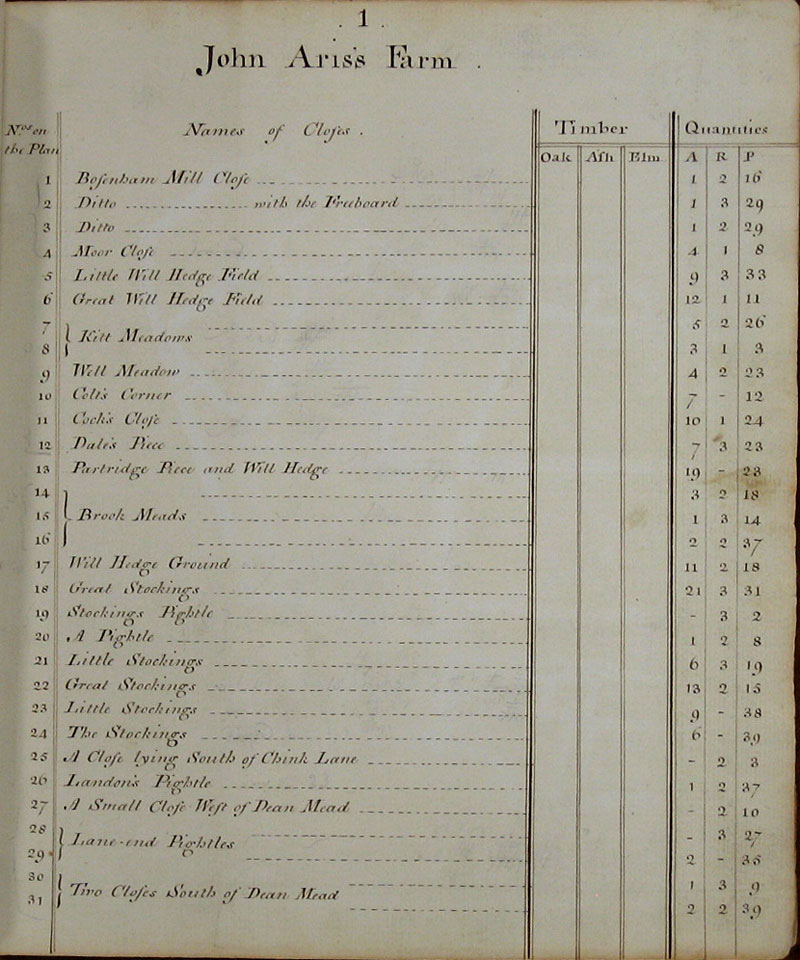 . 1 .
John Aris's Farm .
Nos on the Plan Names of Closes . Timber Quantities
Oak Ash Elm A R P
1 Bosenham Mill Close 1 2 16
2 Ditto with the Freeboard 1 3 29
3 Ditto 1 2 29
4 Moor Close 4 1 8
5 Little Will Hedge Field 9 3 33
6 Great Will Hedge Field 12 1 11
7 5 2 26
Kitt Meadows
8 3 1 3
9 Well Meadow 4 2 23
10 Colt's Corner 7 - 12
11 Cock's Close 10 1 24
12 Dale's Piece 7 3 23
13 Partridge Piece and Will Hedge 19 - 23
14 3 2 18
15 Brook Meads 1 3 14
16 2 2 37
17 Will Hedge Ground 11 2 18
18 Great Stockings 21 3 31
19 Stockings Pightle - 3 2
20 A Pightle 1 2 8
21 Little Stockings 6 3 19
22 Great Stockings 13 2 15
23 Little Stockings 9 - 38
24 The Stockings 6 - 39
25 A Close lying South of Chink Lane - 2 3
26 Landon's Pightle 1 2 37
27 A Small Close West of Dean Mead - 2 10
28 - 3 27
Lane-end Pightles
29 2 - 35
30 1 3 9
Two Closes South of Dean Mead
31 2 2 39